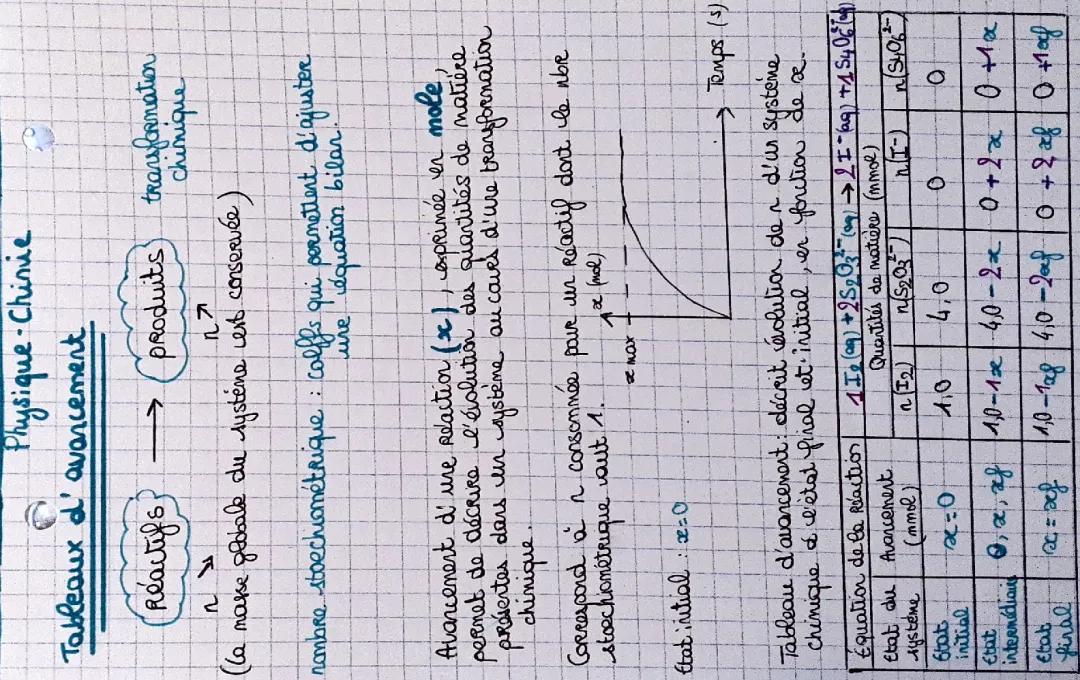 Physique-Chimie
Tableaux d'avancement
Réactifs → produits transformation chimique
n ↘ n ↗
(la masse globale du système est conservée)
nombre stoechiométrique : coeffs qui permettent d'ajuster
une équation bilan.
Avancement d'une réaction (x), exprimée en mole,
permet de décrire l'évolution des quantités de matière
présentes dans un système au cours d'une transformation
chimique.
Correspond à n consommée pour un réactif dont le nbre
stoechiométrique vaut 1.
x (mol)
x max
Etat initial : x=0
Temps (s)
Tableau d'avancement : décrit évolution de n d'un système
chimique à l'état final et initial, en fonction de x.
Équation de la Réaction 1 I2 (aq) + 2S2O3²⁻ (aq) → 2 I⁻ (aq) + 1 S4O6²⁻ (aq)
Etat du système Avancement (mmol) Quantités de matière (mmol)
n(I2) n(S2O3²⁻) n(I⁻) n(S4O6²⁻)
Etat initial x=0 1,0 4,0 0 0
Etat intermédiaire 0, x, xf 1,0-1x 4,0-2x 0+2x 0+1x
Etat final x=xf 1,0-1xf 4,0-2xf 0+2xf 0+1xf